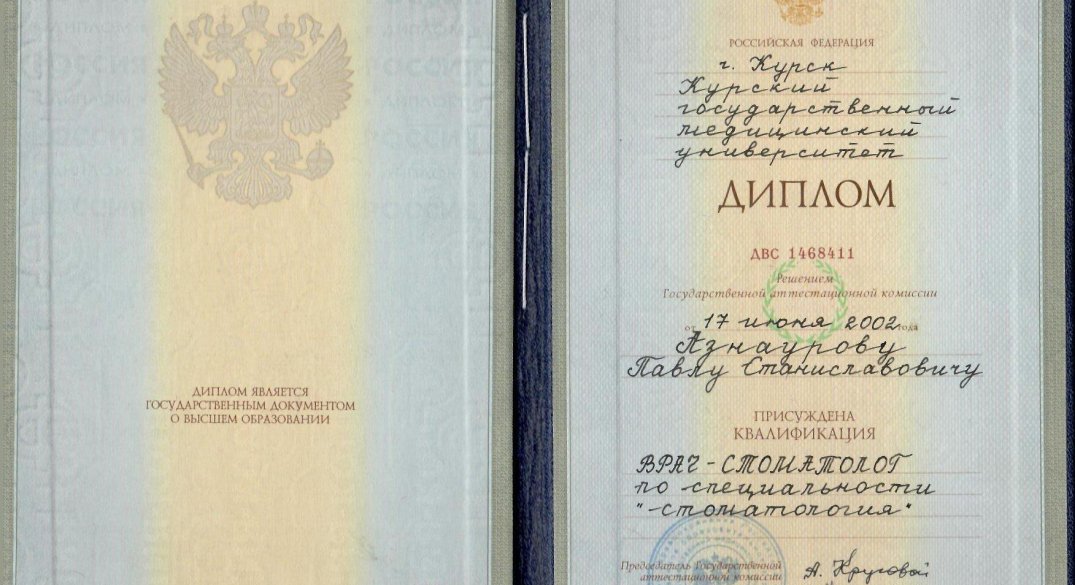 ДИПЛОМ ЯВЛЯЕТСЯ
ГОСУДАРСТВЕННЫМ ДОКУМЕНТОМ
О ВЫСШЕМ ОБРАЗОВАНИИ
РОССИЙСКАЯ ФЕДЕРАЦИЯ
г. Курск
Курский
государственный
медицинский
университет
ДИПЛОМ
ДВС 1468411
Решением
Государственной аттестационной комиссии
от 17 июня 2002 года
Азнаурову
Павлу Станиславовичу
ПРИСУЖДЕНА
КВАЛИФИКАЦИЯ
ВРАЧ-СТОМАТОЛОГ
по специальности
"стоматология"
Председатель Государственной
аттестационной комиссии